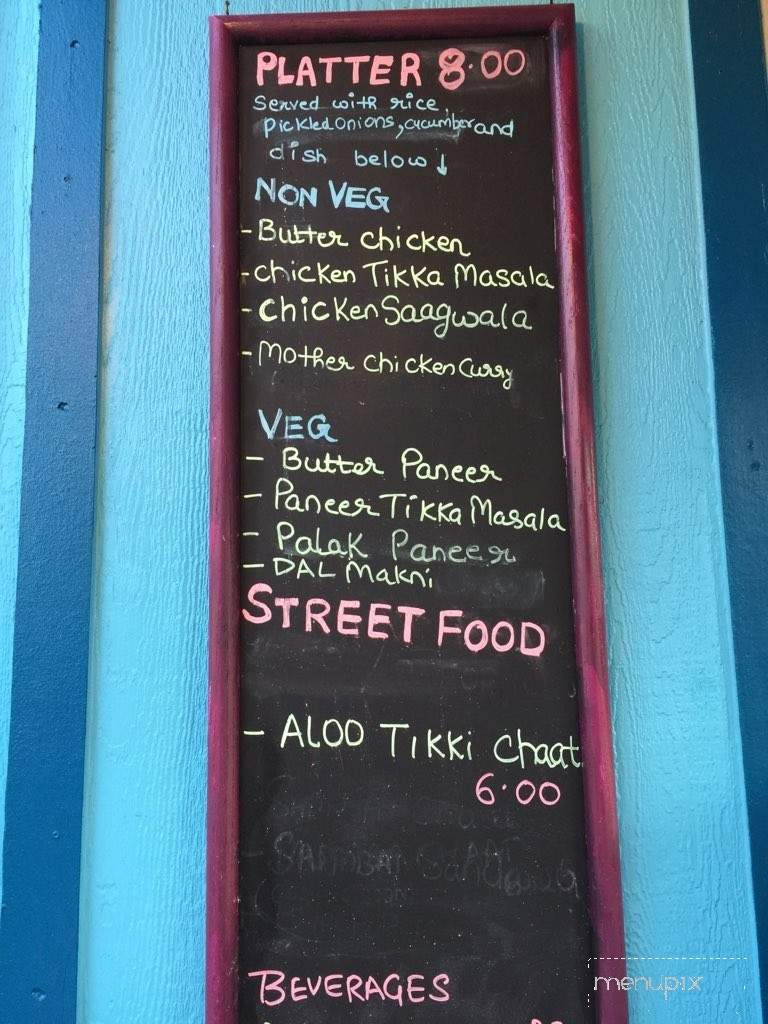 PLATTER 8.00
Served with rice,
pickled onions, cucumber and
dish below ↓
NON VEG
- Butter chicken
- chicken TikKa Masala
- chicken Saagwala
- Mother chicken Curry
VEG
- Butter Paneer
- Paneer TiKKa Masala
- Palak Paneer
- DAL Makni
STREET FOOD
- ALOO TiKKi Chaat
6.00
BEVERAGES
menupix